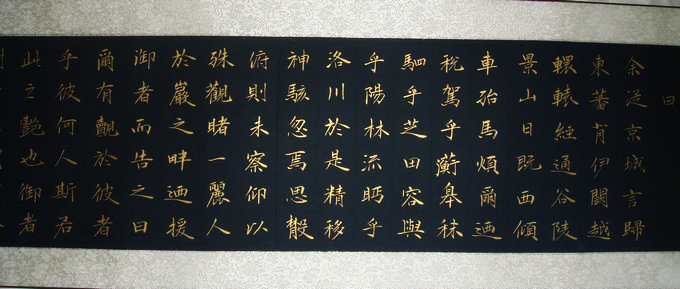 曰
余從京城言歸
東蕃背伊闕越
轘轅經通谷陵
景山日既西傾
車殆馬煩爾迺
稅駕乎蘅皋秣
駟乎芝田容與
乎陽林流眄乎
洛川於是精移
神駭忽焉思散
俯則未察仰以
殊觀睹一麗人
於巖之畔迺援
御者而告之曰
爾有覿於彼者
乎彼何人斯若
此之豔也御者